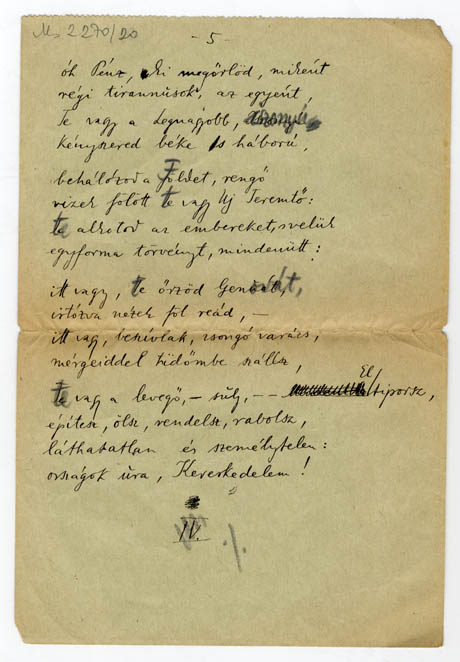 Ms 2270/20
- 5 -
óh Pénz, ki megőrlöd, miként
régi tirannusok, az egyént,
Te vagy a Legnagyobb,
kényszered béke s háború,
behálózod a Földet, rengő
vizek fölött te vagy Új Teremtő:
te alkotod az embereket, s velük
egyforma törvényt, mindenütt:
itt vagy, te őrzöd
irtózva nézek föl reád, —
itt vagy, beszívlak, zsongó varázs,
mérgeiddel tüdőmbe szállsz,
te vagy a levegő, – súly, – – El/tiporsz,
építesz, ölsz, rendelsz, rabolsz,
láthatatlan és személytelen:
országok ura, Kereskedelem!
IV.
./.